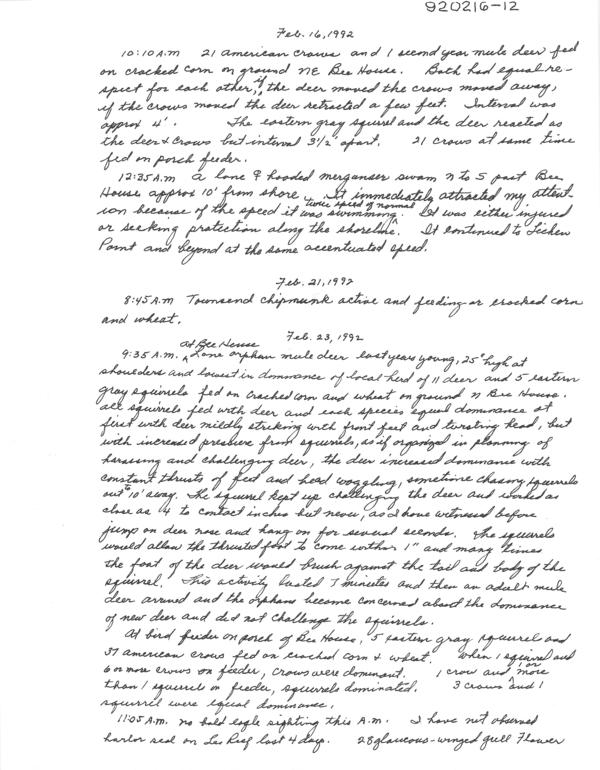 920216-12
Feb. 16, 1992
10:10 A.M 21 american crows and 1 second year mule deer fed
on cracked corn on ground NE Bee House. Both had equal re-
spect for each other, if the deer moved the crows moved away,
if the crows moved the deer retracted a few feet. Interval was
approx 4'. The eastern gray squirrel and the deer reacted as
the deer & crows but interval 3 1/2' apart. 21 crows at same time
fed on porch feeder.
12:35 A.M a lone ♀ hooded merganser swam N to S past Bee
House approx 10' from shore. It immediately attracted my attent-
ion because of the speed it was twice speed of normal swimming. It was either injured
or seeking protection along the shoreline. It continued to Lichen
Point and beyond at the same accentuated speed.
Feb. 21, 1992
8:45 A.M Townsend chipmunk active and feeding on cracked corn
and wheat.
Feb. 23, 1992
9:35 A.M. at Bee House Lone orphan mule deer last years young, 25" high at
shoulders and lowest in dominance of local herd of 11 deer and 5 eastern
gray squirrels fed on cracked corn and wheat on ground N Bee House.
all squirrels fed with deer and each species equal dominance at
first with deer mildly striking with front feet and twisting head, but
with increased pressure from squirrels, as if organized in planning of
harassing and challenging deer, the deer increased dominance with
constant thrusts of feet and head waggling, sometime chasing squirrels
out to 10' away. The squirrel kept up challenging the deer and worked as
close as 4 to contact inches but never, as I have witnessed before
jump on deer nose and hang on for several seconds. The squirrels
would allow the thrusted foot to come within 1" and many times
the foot of the deer would brush against the tail and body of the
squirrel. This activity lasted 7 minutes and then an adult mule
deer arrived and the orphans became concerned about the dominance
of new deer and did not challenge the squirrels.
At bird feeder on porch of Bee House, 5 eastern gray squirrel and
37 american crows fed on cracked corn & wheat. When 1 squirrel and
6 or more crows on feeder, crows were dominant. 1 crow and 1 or more
than 1 squirrels on feeder, squirrels dominated. 3 crows and 1
squirrel were equal dominance.
11:05 A.M. no bald eagle sighting this A.M. I have not observed
harbor seal on Seal Reef last 4 days. 28 glaucous-winged gull Flower